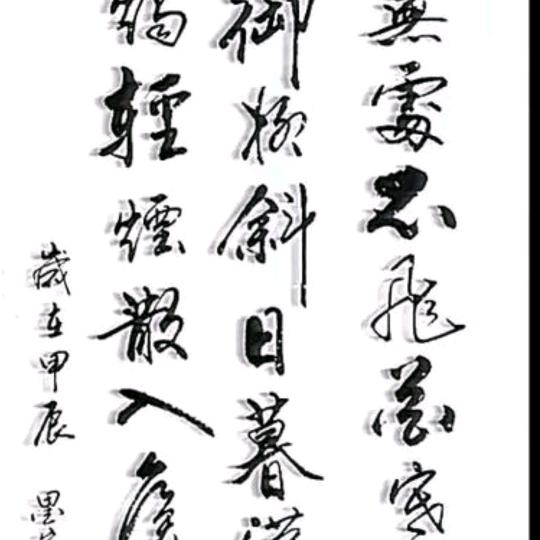 無處不飛花寒
御柳斜日暮漢
燭輕煙散入侯
歲在甲辰 墨